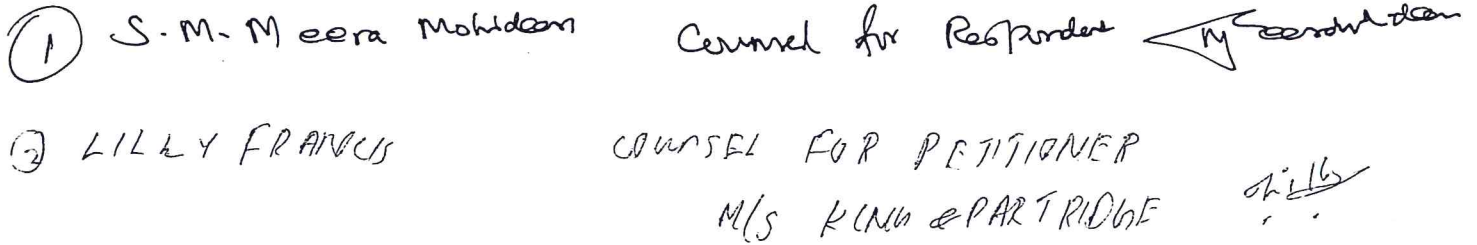 ① S. M. Meera Mohideen Counsel for Respondent
② LILLY FRANCIS COUNSEL FOR PETITIONER
M/S KING & PARTRIDGE